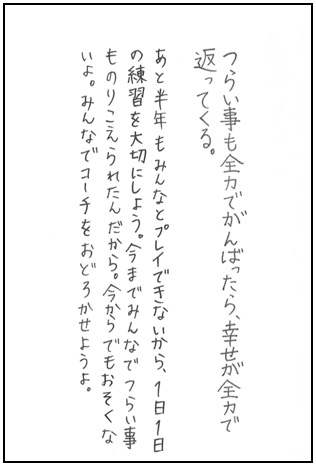 つらい事も全力でがんばったら、幸せが全力で
返ってくる。
あと半年もみんなとプレイできないから、1日1日
の練習を大切にしよう。今までみんなでつらい事
ものりこえられたんだから。今からでもおそくな
いよ。みんなでコーチをおどろかせようよ。